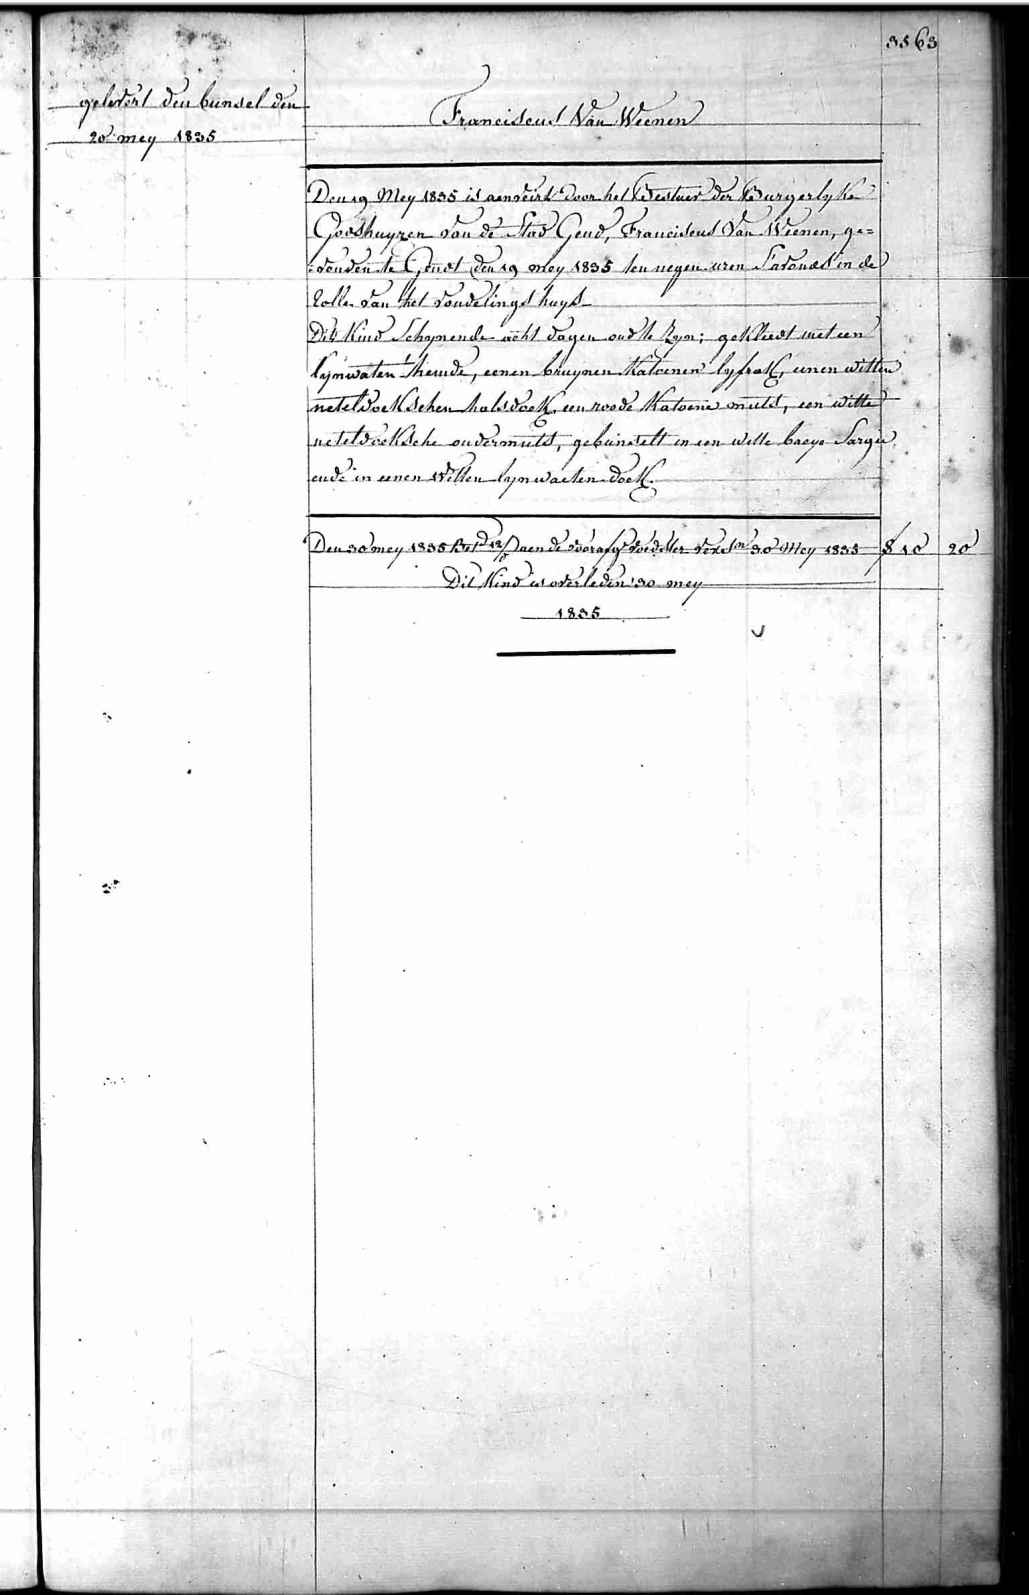 3563
gelevert den bunsel den
20 mey 1835
Franciscus Van Weenen
Den 19 Mey 1835 is aenveirt door het Bestuer der Burgerlyke
Godshuyzen van de Stad Gend, Franciscus Van Weenen, ge=
vonden te Gendt den 19 mey 1835 ten negen uren S'avonds in de
rolle van het vondelingshuys
Dit Kind Schynende acht dagen oud te zyn; gekleedt met een
lynwaten hemde, eenen bruynen Katoenen lyfrok, eenen witten
neteldoekschen halsdoek, een roode Katoene muts, een witte
neteldoeksche ondermuts, gebunselt in een witte baeye Sargie
ende in eenen Witten lynwaeten doek.
Den 30 mey 1835 aen de voedster 30 Mey 1835 10 20
Dit Kind is overleden 30 mey
1835